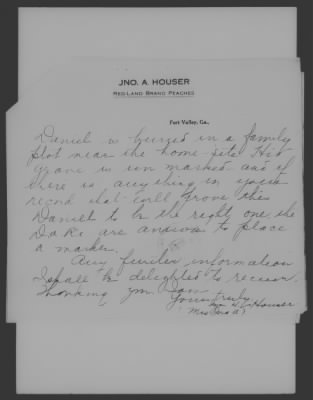 JNO. A. HOUSER
RED-LAND BRAND PEACHES
Fort Valley, Ga.,
Daniel is buried in a family
plot near the home site. His
grave is un marked and if
there is any thing in your
record that will prove this
Daniel to be the right one the
D.A.R. are anxious to place
a marker.
Any further information
I shall be delighted to receive.
Thanking you. I am
Yours truly
Houser
(Mrs Jno A)